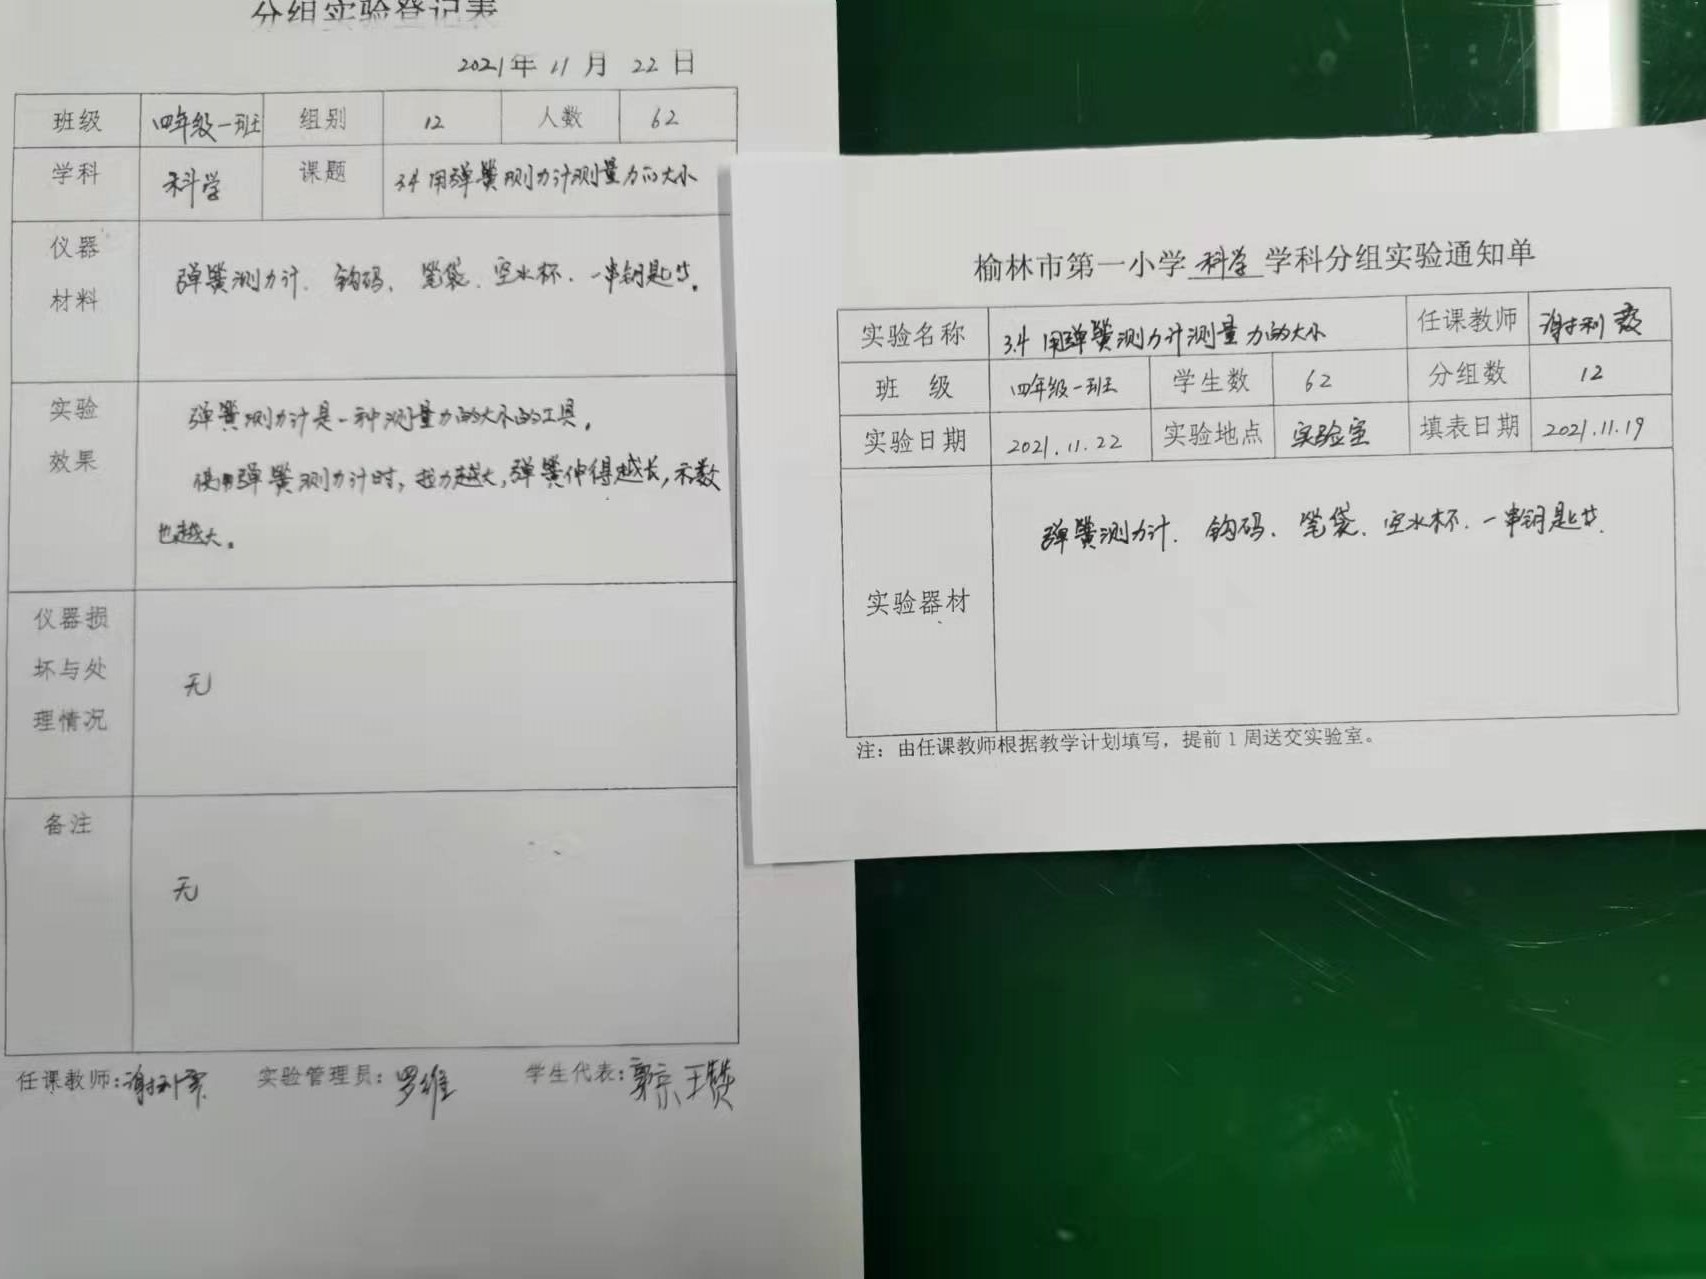 分组实验登记表
2021年 11月 22日
班级 四年级一班 组别 12 人数 62
学科 科学 课题 3.4 用弹簧测力计测量力的大小
仪器
材料
弹簧测力计、钩码、笔袋、空水杯、一串钥匙等。
实验
效果
弹簧测力计是一种测量力的大小的工具。
使用弹簧测力计时，拉力越大，弹簧伸得越长，示数
也越大。
仪器损
坏与处
理情况
无
备注
无
任课教师： 实验管理员：罗维 学生代表：
榆林市第一小学 科学 学科分组实验通知单
实验名称 3.4 用弹簧测力计测量力的大小 任课教师
班 级 四年级一班 学生数 62 分组数 12
实验日期 2021.11.22 实验地点 实验室 填表日期 2021.11.19
实验器材
弹簧测力计、钩码、笔袋、空水杯、一串钥匙等.
注：由任课教师根据教学计划填写，提前1周送交实验室。